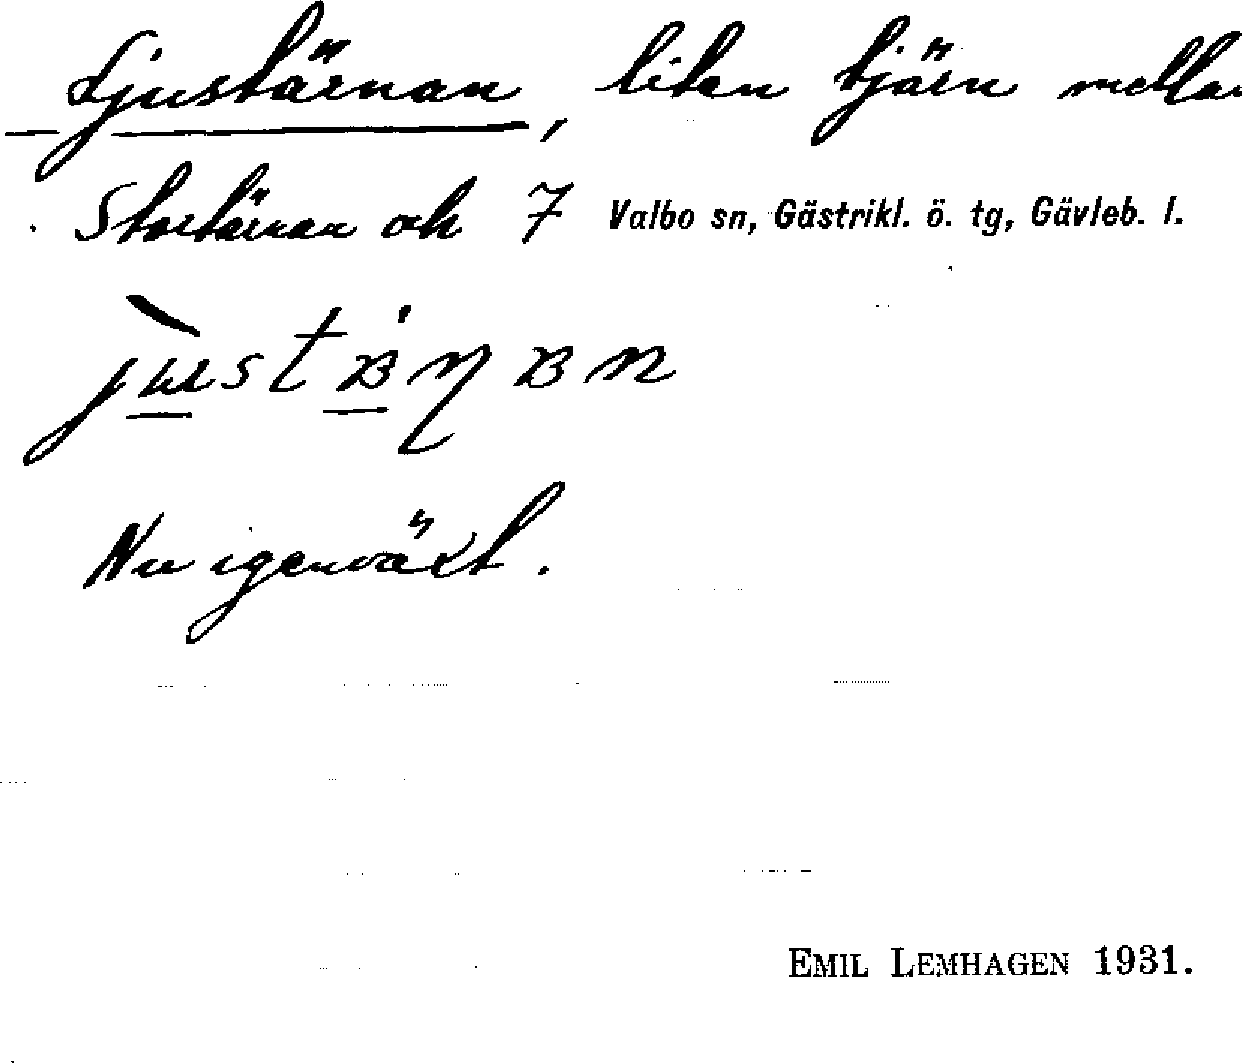 Ljustärnan, liten tjärn mellan
Stortärnan och 7 Valbo sn, Gästrikl. ö. tg, Gävleb. l.
Nu igenväxt.
EMIL LEMHAGEN 1931.